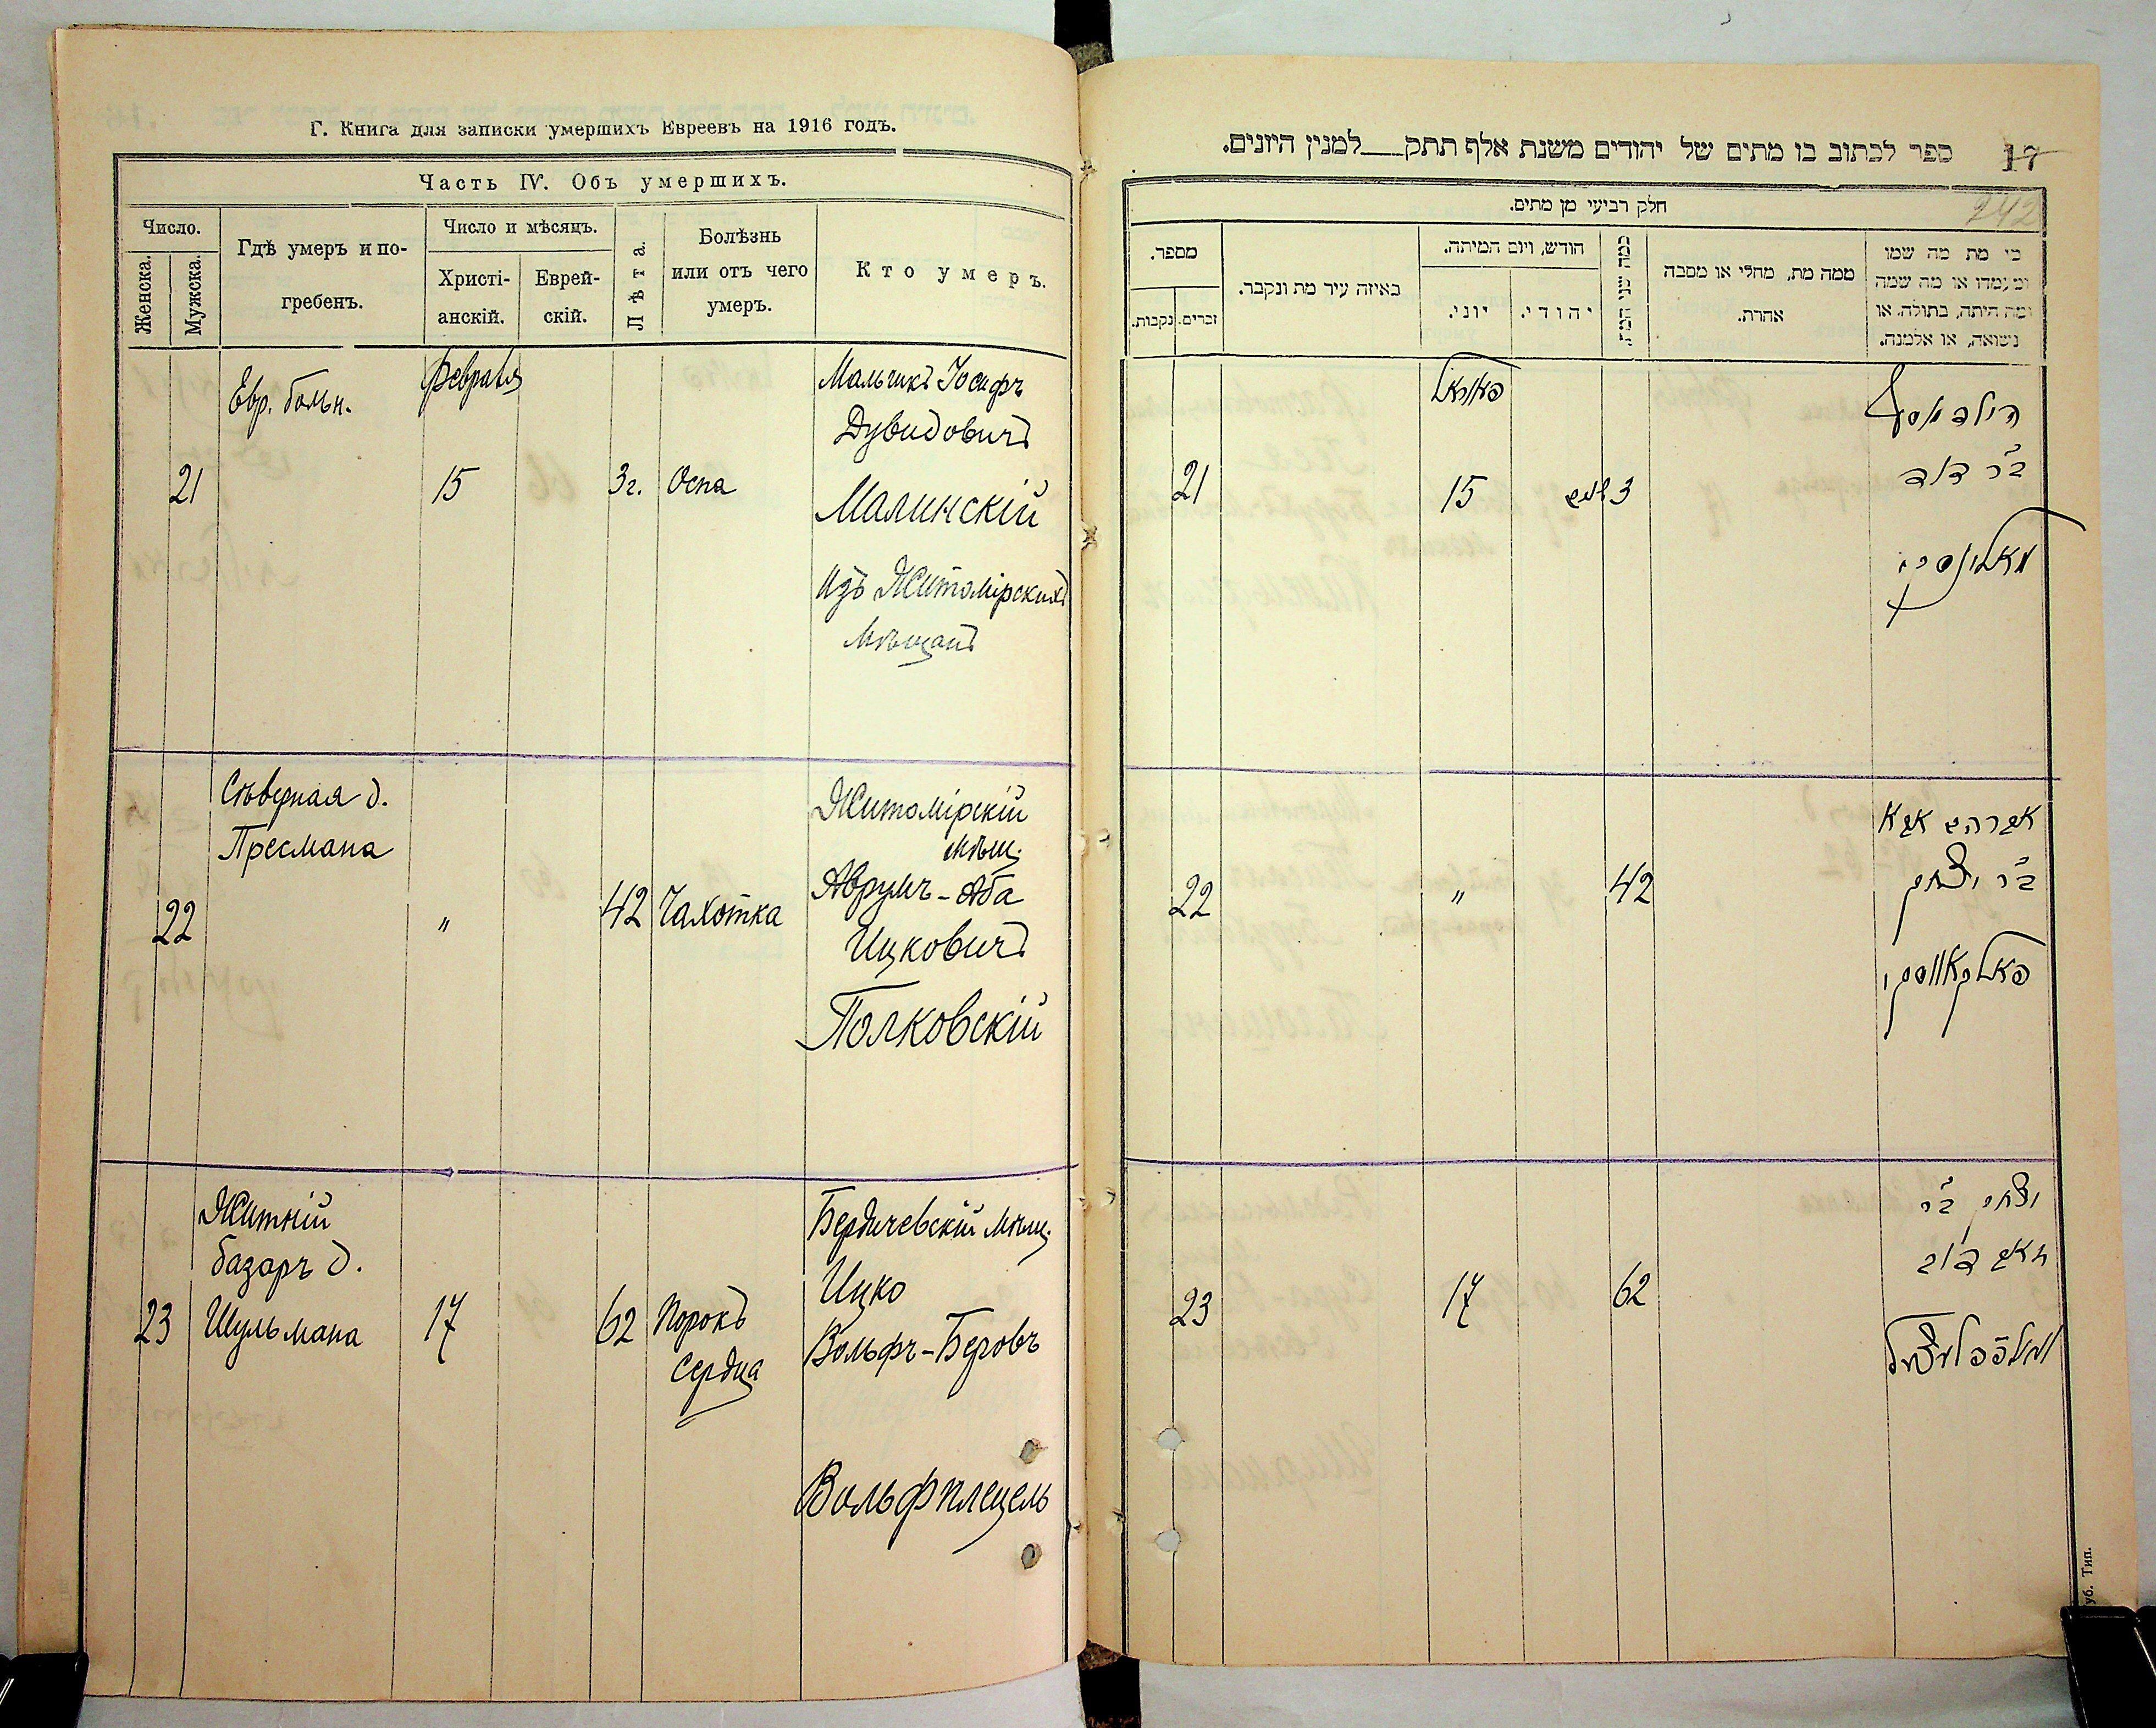 Г. Книга для записки умершихъ Евреевъ на 1916 годъ.
Часть IV. Объ умершихъ.
Число.
Женска.
Мужска.
Гдѣ умеръ и по-
гребенъ.
Число и мѣсяцъ.
Христі-
анскій.
Еврей-
скій.
Лѣта.
Болѣзнь
или отъ чего
умеръ.
Кто умеръ.
21
Евр. больн.
Февраля
15
3 г.
Оспа
Мальчикъ Іосифъ
Дувидовичъ
Малинскій
Изъ Житомірскихъ
мѣщанъ
22
Сѣверная д.
Пресмана
"
42
Чахотка
Житомірскій
мѣщ.
Аврумъ-Аба
Ицковичъ
Полковскій
23
Житній
базаръ д.
Шульмана
17
62
Порокъ
Сердца
Бердичевскій мѣщ.
Ицко
Вольфъ-Беровъ
Вольфплецель
ספר לכתוב בו מתים של יהודים משנת אלף תתק למנין היונים.
17
242
חלק רביעי מן מתים.
מספר.
זכרים.
נקבות.
באיזה עיר מת ונקבר.
חודש, ויום המיתה.
יוני.
יהודי.
כמה שני המת.
ממה מת, מחלי או מסבה
אחרת.
כי מת מה שמו
ומעמדו או מה שמה
ומה היתה, בתולה. או
נשואה, או אלמנה.
21
15
3
הילד יוסף
ב"ר דוד
מאלינסקי
22
"
42
אברהם אבא
ב"ר יצחק
פאלקאווסקי
23
17
62
יצחק ב"ר
זאב דוב
וואלפפלעצעל
уб. Тип.